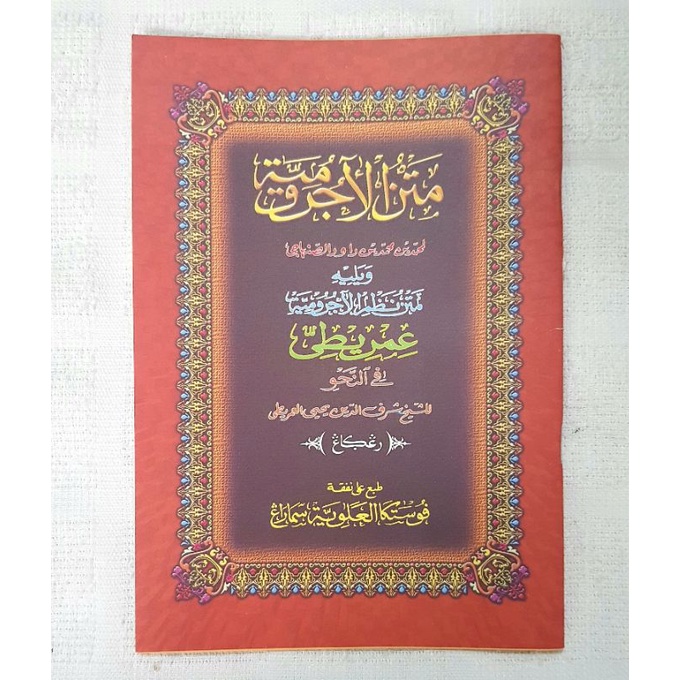 متن الآجرومية
لمحمد بن محمد بن داود الصنهاجي
ويليه
متن نظم الآجرومية
عمريطي
في النحو
للشيخ شرف الدين يحيى العمريطي
﴿ رڠكاڠ ﴾
طبع على نفقة
فوستكا العلوية سماراڠ